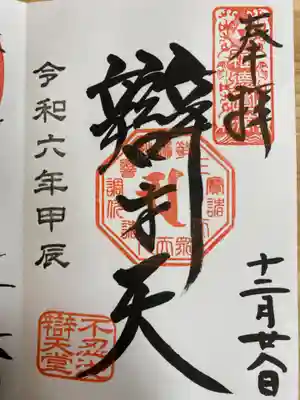 奉拝
十二月廿八日
辯才天
令和六年甲辰
不忍池
辯天堂